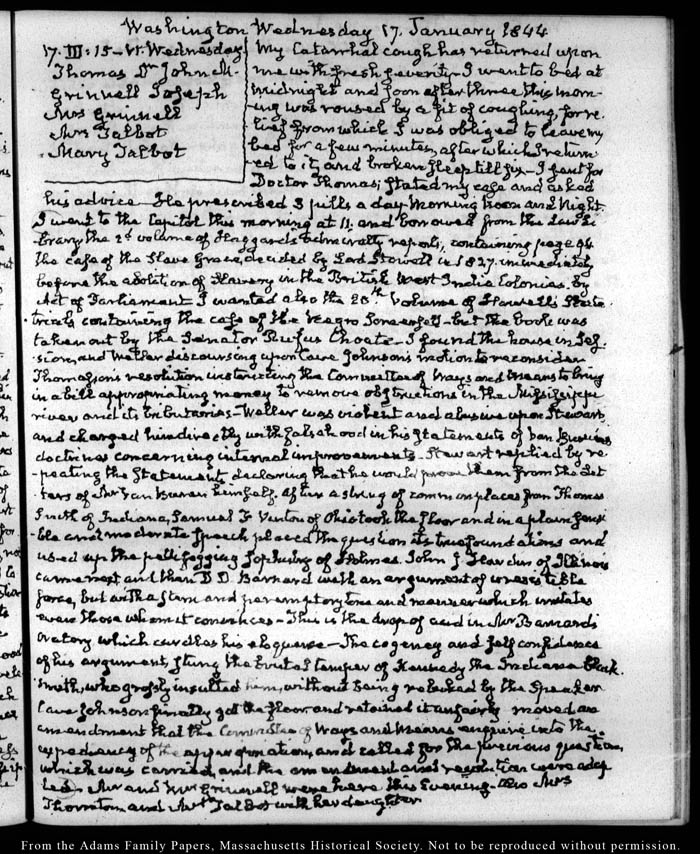 Washington Wednesday 17. January 1844
17. III: 15 - W. Wednesday
Thomas Dr John M.
Grinnell Joseph
Mrs Grinnell
Mrs Talbot
Mary Talbot
My Catarrhal cough has returned upon
me with fresh severity - I went to bed at
midnight and soon after three this morn-
ing was roused by a fit of coughing, for re-
lief from which I was obliged to leave my
bed for a few minutes, after which I return-
ed to it, and broken sleep till six - I sent for
Doctor Thomas; stated my case and asked
his advice - He prescribed 3 pills a day Morning Noon and Night.
I went to the Capitol this morning at 11. and borrowed from the Law Li-
brary the 2d volume of Haggard's Admiralty reports, containing page 94.
the case of the Slave Grace, decided by Lord Stowell in 1827. immediately
before the abolition of Slavery in the British West India Colonies. by
Act of Parliament I wanted also the 20th Volume of Howell's State
trials containing the case of the Negro Somerset - but the book was
taken out by the Senator Rufus Choate - I found the house in Ses-
sion, and Weller discoursing upon Cave Johnson's motion to reconsider
Thomasson's resolution instructing the Committee of Ways and Means to bring
in a bill appropriating money to remove obstructions in the Mississippi
river and its tributaries - Weller was violent and abusive upon Stewart
and charged him directly with falsehood in his statements of Van Buren's
doctrines concerning internal improvements - Stewart replied by re-
peating the statement, declaring that he would prove them from the Let-
ters of Mr Van Buren himself. After a string of common places from Thomas
Smith of Indiana, Samuel F Vinton of Ohio took the floor and in a plain sensi-
ble and moderate speech placed the question on its true foundations and
used up the pettifogging sophistry of Holmes. John J. Hardin of Illinois
came next and then D. D. Barnard with an argument of irresistible
force, but with a stern and peremptory tone and manner which irritates
even those whom it convinces - This is the drop of acid in Mr Barnard's
Oratory which curdles his eloquence - The cogency and self confidence
of his argument, stung the brutal temper of Kennedy the Indiana black-
smith, who grossly insulted him, without being rebuked by the Speaker
Cave Johnson finally got the floor and retained it unfairly moved an
amendment that the Committee of Ways and Means enquire into the
expediency of the appropriation, and called for the previous question,
which was carried, and the amendment and resolution were adop-
ted - Mr and Mrs Grinnell were here this Evening - also Mrs
Thornton and Mrs Talbot with her daughter
From the Adams Family Papers, Massachusetts Historical Society. Not to be reproduced without permission.